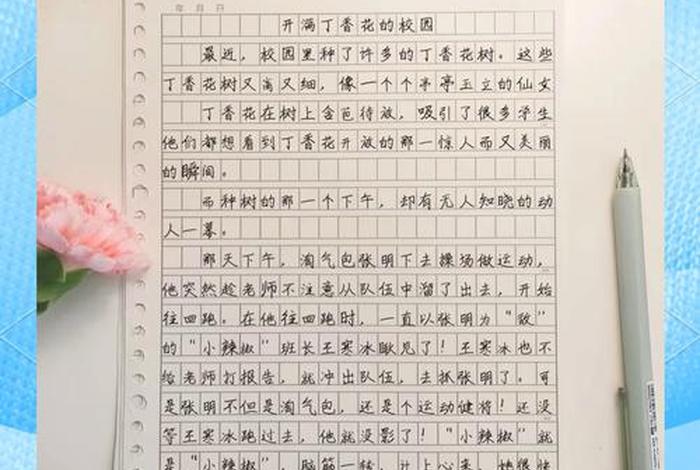 年 月 日
开满丁香花的校园
最近，校园里种了许多的丁香花树。这些
丁香花树又高又细，像一个个亭亭玉立的仙女
丁香花在树上含苞待放，吸引了很多学生
他们都想看到丁香花开放的那一惊人而又美丽
的瞬间。
而种树的那一个下午，却有无人知晓的动
人一幕。
那天下午，淘气包张明下去操场做运动，
他突然趁老师不注意从队伍中溜了出去，开始
往四跑。在他往四跑时，一直以张明为“敌”
的“小辣椒”班长王寒冰瞅见了！王寒冰也不
给老师打报告，就冲出队伍，去抓张明了。可
是张明不但是淘气包，还是个运动健将！还没
等王寒冰跑过去，他就没影了！“小辣椒”就
是“小辣椒”，脑筋一转，计上心来，她很快